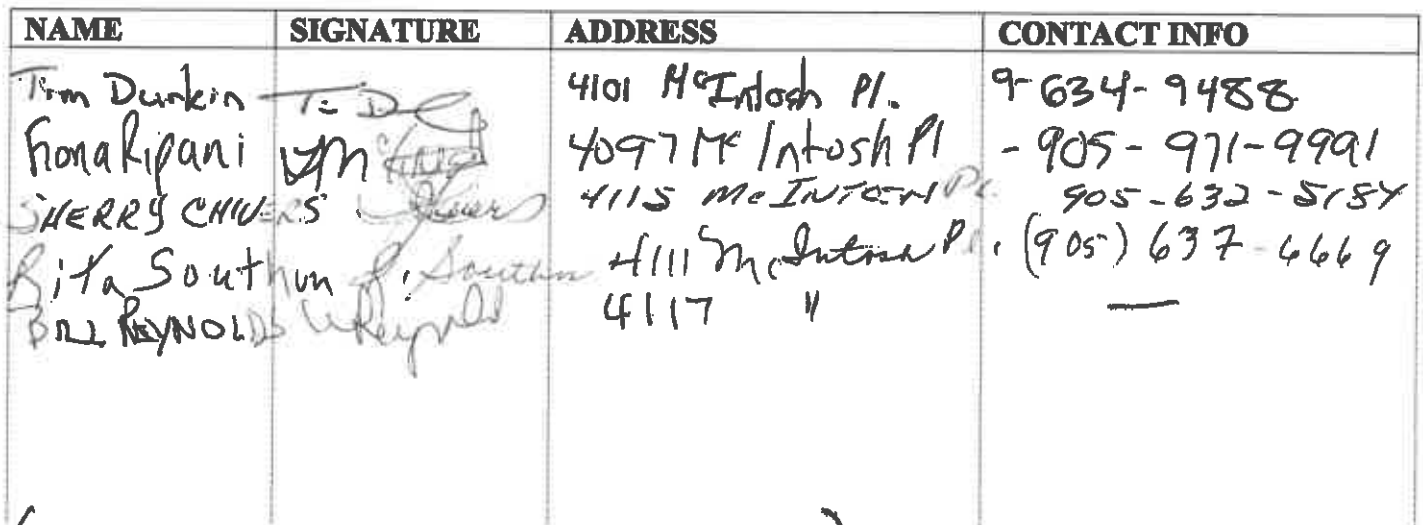 NAME SIGNATURE ADDRESS CONTACT INFO
Tim Durkin T. D 4101 McIntosh Pl. 9-634-9488
Fiona Ripani 4097 Mc Intosh Pl - 905-971-9991
SHERRY CHIVERS 4115 McINTOSH PL. 905-632-5154
Rita Southun R. Southun 4111 McIntosh Pl. (905) 637-6669
BILL REYNOLDS WReynolds 4117 " —